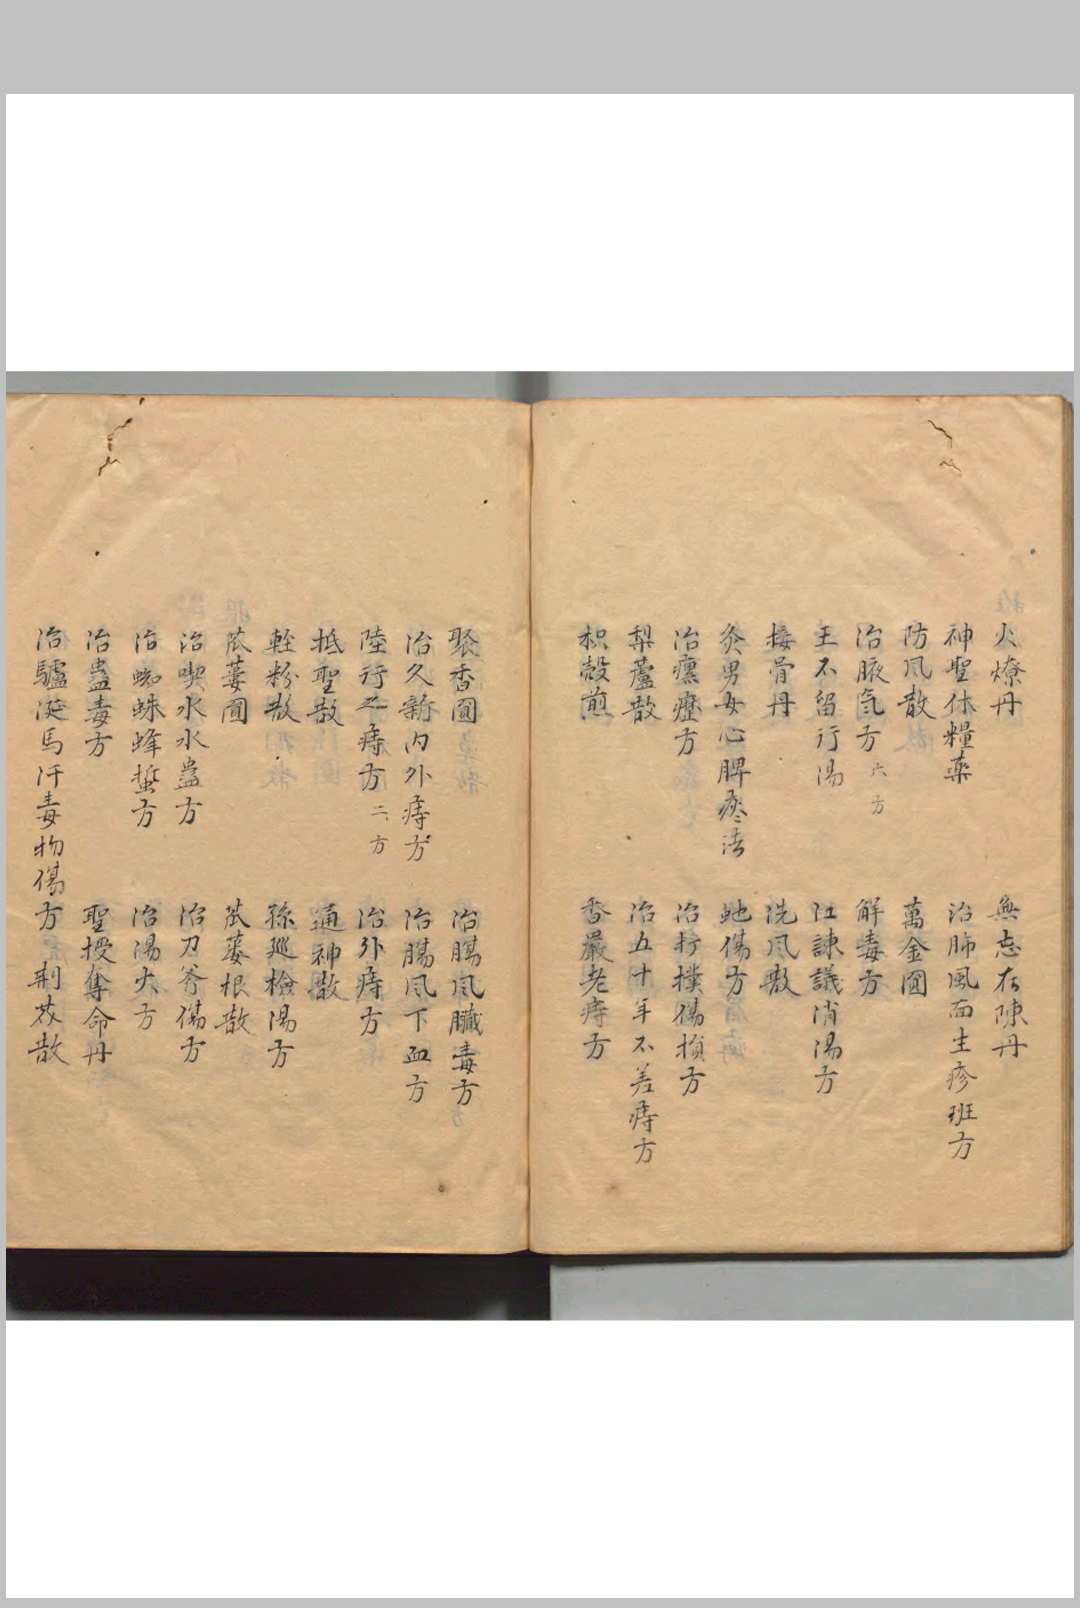 火燎丹　無忘在陳丹
神聖休糧藥　治肺風面生疹班方
防風散　萬金圓
治腋氣方六方　解毒方
王不留行湯　江諫議消湯方
接骨丹　洗風散
灸男女心脾疼法　虵傷方
治瘰癧方　治打撲傷損方
梨蘆散　治五十年不差痔方
枳殼煎　香嚴老痔方
聚香圓　治腸風臟毒方
治久新內外痔方　治腸風下血方
陸行之痔方二方　治外痔方
抵聖散　通神散
輕粉散　孫巡檢湯方
苽蔞圓　苽蔞根散
治喫水水蠱方　治刀斧傷方
治蜘蛛蜂蜇方　治湯火方
治蠱毒方　聖授奪命丹
治驢涎馬汗毒物傷方　荆芥散